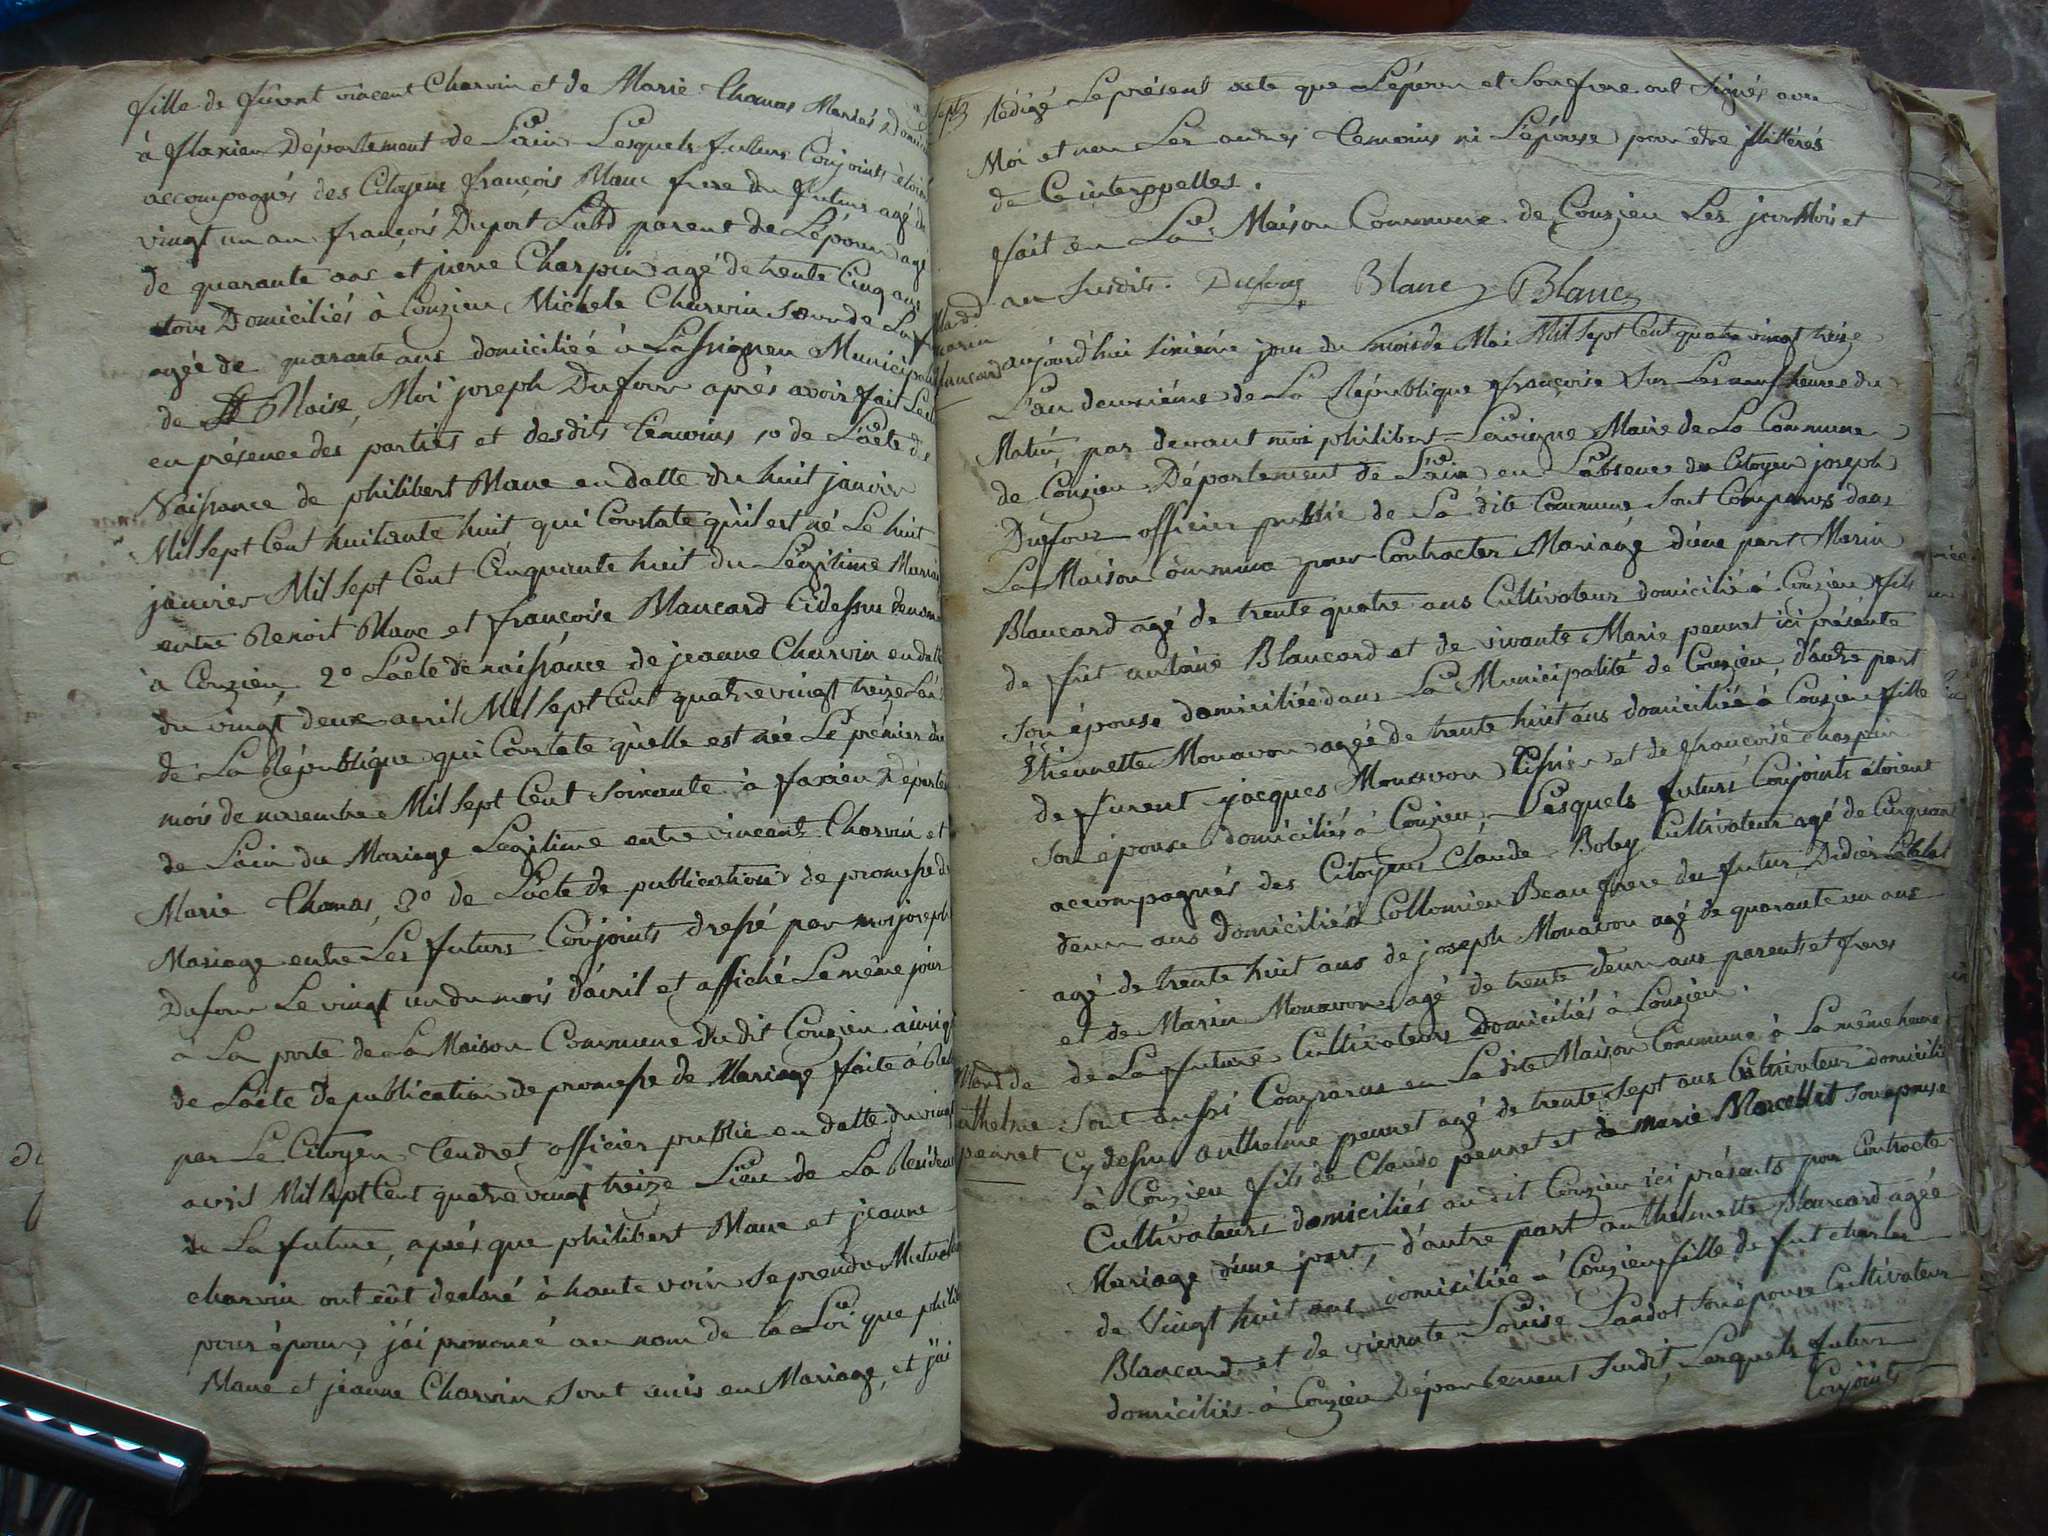 fille de fûrent vincent Charvin et de Marie Thomas Mariés
à flaxieu Département de L'ain Lesquels futurs Conjoints étoient
accompagnés des Citoyens françois Blanc frere du futur agé de
vingt un an françois Duport parent de L'époux agé
de quarante ans et pierre Charpin agé de trente Cinq ans
tous Domiciliés à Couzieu Michele Charvin soeur de La
agée de quarante ans domiciliée à Lassignieu
de Moi joseph Dufour après avoir fait
en présence des parties et desdits témoins 1º de L'acte de
Naissance de philibert Blanc en datte du huit janvier
Mil Sept Cent huitante huit qui Constate qu'il est né Le huit
janvier Mil Sept Cent Cinquante huit du Légitime
entre Benoit Blanc et françoise Blancard Cidessus
à Couzieu, 2º L'acte de naissance de jeanne Charvin en
du vingt deux avril Mil Sept Cent quatre vingt treize L'an
de La République qui Constate qu'elle est née Le prémier du
mois de novembre Mil Sept Cent Soixante à
de L'ain du Mariage Légitime entre vincent Charvin et
Marie Thomas, 3º de L'acte de publication de promesse de
Mariage entre Les futurs Conjoints dressé par moi joseph
Dufour Le vingt un du mois d'avril et affiché Le même jour
à La porte de La Maison Commune dudit Couzieu
de L'acte de publication de promesse de Mariage faite à
par Le Citoyen Tendret officier public en datte du vingt
avril Mil Sept Cent quatre vingt treize Lieu de La
de La future, après que philibert Blanc et jeanne
charvin ont eût declaré à haute voix se prendre
pour époux, j'ai prononcé au nom de la Loi que
Blanc et jeanne Charvin Sont unis en Mariage, et j'ai
Rédigé Le présent acte que L'époux et Son frere ont Signés avec
Moi et non Les autres Temoins ni L'épouse pour être illittérés
de Ce interppellés.
fait en La Maison Commune de Couzieu Les jour Mois et
an Susdits. Dufour Blanc Blanc
aujourd'hui Sixième jour du mois de Mai Mil Sept Cent quatre vingt treize
L'an deuxième de La République françoise Sur Les neuf heures du
Matin, par devant moi philibert Lavigne Maire de La Commune
de Couzieu Département de L'ain en L'absence du Citoyen joseph
Dufour officier public de La dite Commune Sont Comparus dans
La Maison Commune pour Contracter Mariage d'une part Marin
Blancard agé de trente quatre ans Cultivateur domicilié à Couzieu fils
de fut antoine Blancard et de vivante Marie pennet ici présente
Son épouse domiciliée dans La Municipalité de Couzieu, d'autre part
Ethiennette Monavon agée de trente huit ans domiciliée à Couzieu fille
de furent jacques Monavon et de françoise charpin
Son épouse domiciliés à Couzieu, Lesquels futurs Conjoints étoient
accompagnés des Citoyens Claude Boby Cultivateur agé de Cinquante
deux ans domicilié à Collomieu Beau frere du futur, Didier
agé de trente huit ans de joseph Monavon agé de quarante un ans
et de Marin Monavon agé de trente deux ans parents et freres
de La future Cultivateurs Domiciliés à Couzieu.
Sont aussi Comparus en La dite Maison Commune à La même heure
Mard de
anthelme
pennet
Cy dessus anthelme pennet agé de trente Sept ans Cultivateur domicilié
à Couzieu fils de Claude pennet et de marie Son épouse
Cultivateurs domiciliés au dit Couzieu ici présents pour Contracter
Mariage d'une part, d'autre part anthelmette Blancard agée
de Vingt huit ans domiciliée à Couzieu fille de fut charles
Blancard et de vivante Louise Landot Son épouse Cultivateur
domiciliés à Couzieu Département Susdit, Lesquels futurs
Conjoints